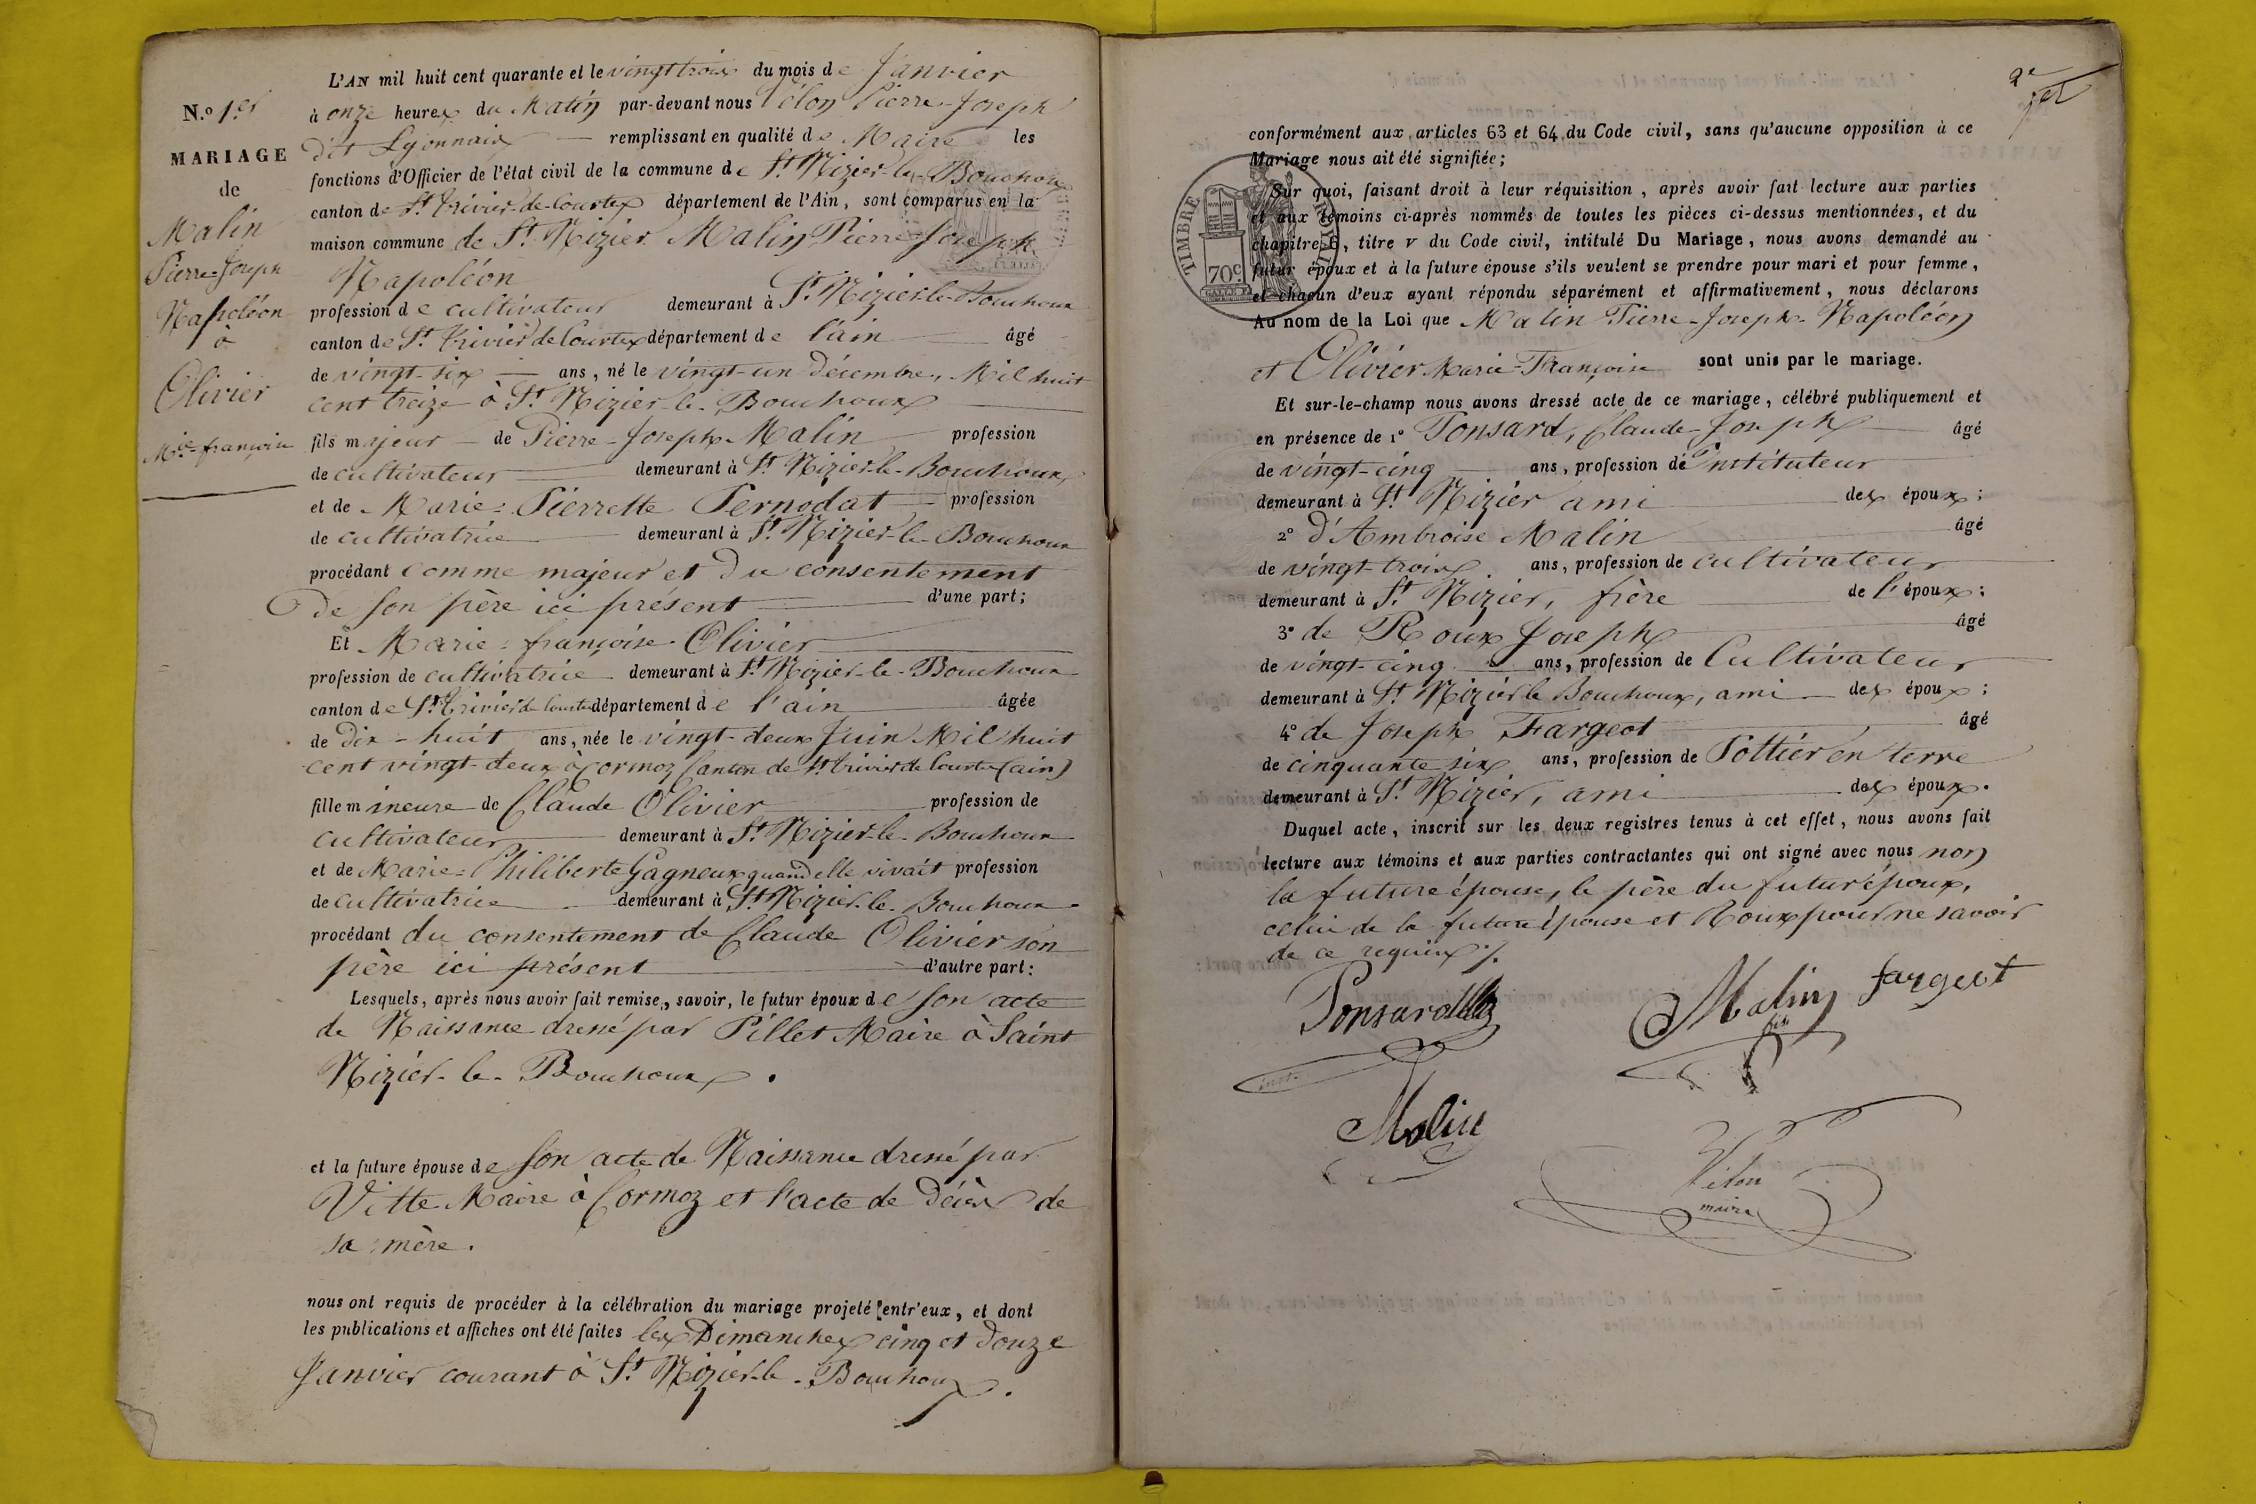 N.o 1.er
MARIAGE
de
Malin
Pierre-Joseph
Napoléon
à
Olivier
M.ie françoise
L'AN mil huit cent quarante et le vingt trois du mois de Janvier
à onze heures du Matin par-devant nous Vélon Pierre-Joseph
dit Lyonnais remplissant en qualité de Maire les
fonctions d'Officier de l'état civil de la commune de St. Nizier-le-Bouchoux
canton de St. trivier-de-Courtes département de l'Ain, sont comparus en la
maison commune de St. Nizier Malin Pierre-Joseph
Napoléon
profession de cultivateur demeurant à St. Nizier-le-Bouchoux
canton de St. trivier de Courtes département de l'ain âgé
de vingt-six ans, né le vingt-un Décembre, Mil huit
cent treize à St. Nizier-le-Bouchoux
fils majeur de Pierre-Joseph Malin profession
de cultivateur demeurant à St. Nizier-le-Bouchoux
et de Marie-Pierrette Pernodat profession
de cultivatrice demeurant à St. Nizier-le-Bouchoux
procédant comme majeur et du consentement
de son père ici présent d'une part;
Et Marie-françoise Olivier
profession de cultivatrice demeurant à St. Nizier-le-Bouchoux
canton de St. trivier de Courtes département de l'ain âgée
de dix-huit ans, née le vingt-deux Juin Mil huit
cent vingt-deux à Cormoz Canton de St. trivier de Courtes (ain)
fille mineure de Claude Olivier profession de
cultivateur demeurant à St. Nizier-le-Bouchoux
et de Marie-Philiberte Gagneux quand elle vivait profession
de cultivatrice demeurant à St. Nizier-le-Bouchoux
procédant du consentement de Claude Olivier son
père ici présent d'autre part:
Lesquels, après nous avoir fait remise, savoir, le futur époux de son acte
de Naissance dressé par Pillet Maire à Saint
Nizier-le-Bouchoux.
et la future épouse de son acte de Naissance dressé par
Vitte Maire à Cormoz et l'acte de Décès de
sa mère.
nous ont requis de procéder à la célébration du mariage projeté entr'eux, et dont
les publications et affiches ont été faites les Dimanches cinq et douze
Janvier courant à St. Nizier-le-Bouchoux.
2e
conformément aux articles 63 et 64 du Code civil, sans qu'aucune opposition à ce
Mariage nous ait été signifiée;
TIMBRE ROYAL
70c
Sur quoi, faisant droit à leur réquisition, après avoir fait lecture aux parties
et aux témoins ci-après nommés de toutes les pièces ci-dessus mentionnées, et du
chapitre 6, titre v du Code civil, intitulé Du Mariage, nous avons demandé au
futur époux et à la future épouse s'ils veulent se prendre pour mari et pour femme,
et chacun d'eux ayant répondu séparément et affirmativement, nous déclarons
Au nom de la Loi que Malin Pierre-Joseph-Napoléon
et Olivier Marie-Françoise sont unis par le mariage.
Et sur-le-champ nous avons dressé acte de ce mariage, célébré publiquement et
en présence de 1o Ponsard, Claude-Joseph âgé
de vingt-cinq ans, profession de Instituteur
demeurant à St. Nizier ami des époux;
2o d'Ambroise Malin âgé
de vingt-trois ans, profession de cultivateur
demeurant à St. Nizier, frère de l'époux;
3o de Roux Joseph âgé
de vingt-cinq ans, profession de Cultivateur
demeurant à St. Nizier le Bouchoux, ami des époux;
4o de Joseph Fargeot âgé
de cinquante six ans, profession de Pottier en terre
demeurant à St. Nizier, ami des époux.
Duquel acte, inscrit sur les deux registres tenus à cet effet, nous avons fait
lecture aux témoins et aux parties contractantes qui ont signé avec nous non
la future épouse, le père du futur époux,
celui de la future épouse et Roux pour ne savoir
de ce requis
Ponsard Malin fils fargeot
inst.
Malin
Vélon
maire